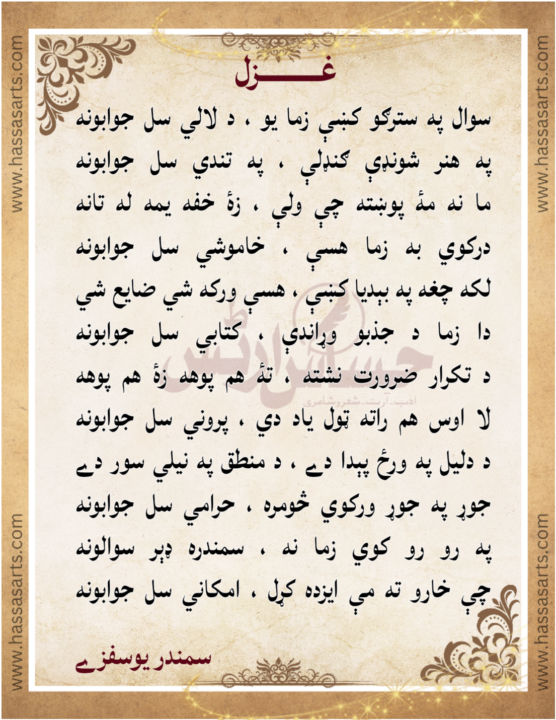 غـــزل
سوال په سترګو کښې زما یو ، د لالي سل جوابونه
په هنر شونډې ګنډلې ، په تندي سل جوابونه
ما نه مۀ پوښته چې ولې ، زۀ خفه یمه له تانه
درکوي به زما هسې ، خاموشي سل جوابونه
لکه چغه په بېدیا کښې ، هسې ورکه شي ضایع شي
دا زما د جذبو وړاندې ، کتابي سل جوابونه
د تکرار ضرورت نشته ، تۀ هم پوهه زۀ هم پوهه
لا اوس هم راته ټول یاد دي ، پروني سل جوابونه
د دلیل په ورځ پېدا دے ، د منطق په نیلي سور دے
جوړ په جوړ ورکوي څومره ، حرامي سل جوابونه
په رو رو کوي زما نه ، سمندره ډېر سوالونه
چې خارو ته مې ایزده کړل ، امکاني سل جوابونه
سمندر یوسفزے
حساس آرٹس
ادب۔آرٹ۔شعروشاعری
www.hassasarts.com
www.hassasarts.com
www.hassasarts.com
www.hassasarts.com